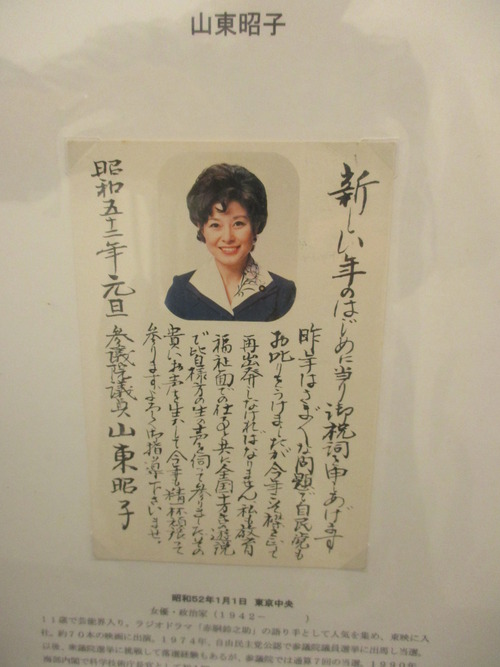 山東昭子
新しい年のはじめに当り御祝詞を申しあげます
昨年はさまざまな問題で自民党も
お叱りをうけましたが今年こそ襟を正して
再出発しなければなりません 私も教育
福祉面での仕事と共に全国十万キロ遊説
で皆様方の生の声を伺って参りましたがその
貴いお声を生かして今年も精一杯頑張って
参りますよろしく御指導下さいませ。
昭和五十二年元旦 参議院議員 山東昭子
昭和52年1月1日 東京中央
女優・政治家(1942－ )
11歳で芸能界入り。ラジオドラマ「赤胴鈴之助」の語り手として人気を集め、東映に入
社。約70本の映画に出演。1974年、自由民主党公認で参議院議員選挙に出馬し当選。
以後、衆議院選挙に挑戦して落選経験もあるが、参議院では通算7回の当選。